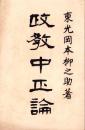 東光岡本柳之助著
政教中正論